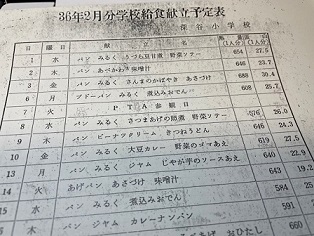 36年2月分学校給食献立予定表
深谷小学校
日 曜日 献立名 (1人分) (1人分)
1 水 パン みるく うづら豆甘煮 野菜ソテー 654 27.5
2 木 パン あべかわ 味噌汁 23.0
3 金 パン みるく さんまのかばやき あさづけ 689 30.4
6 月 ソドーパン みるく 煮込みおでん 608 25.7
7 火 PTA参観日
8 水 パン みるく さつまあげの助煮 野菜ソテー 26.0
9 木 パン ピーナツクリーム きつねうどん 646 24.3
10 金 パン みるく 大豆カレー 野菜のゴマあえ 619 27.9
13 月 パン みるく ジャム じやが芋のソースあえ 640 22.9
14 火 あげパン あさづけ 味噌汁 643 19.2
15 水 パン みるく 煮込みおでん 584 25
木 パン ジャム カレーナンバン 591
おひたし 660